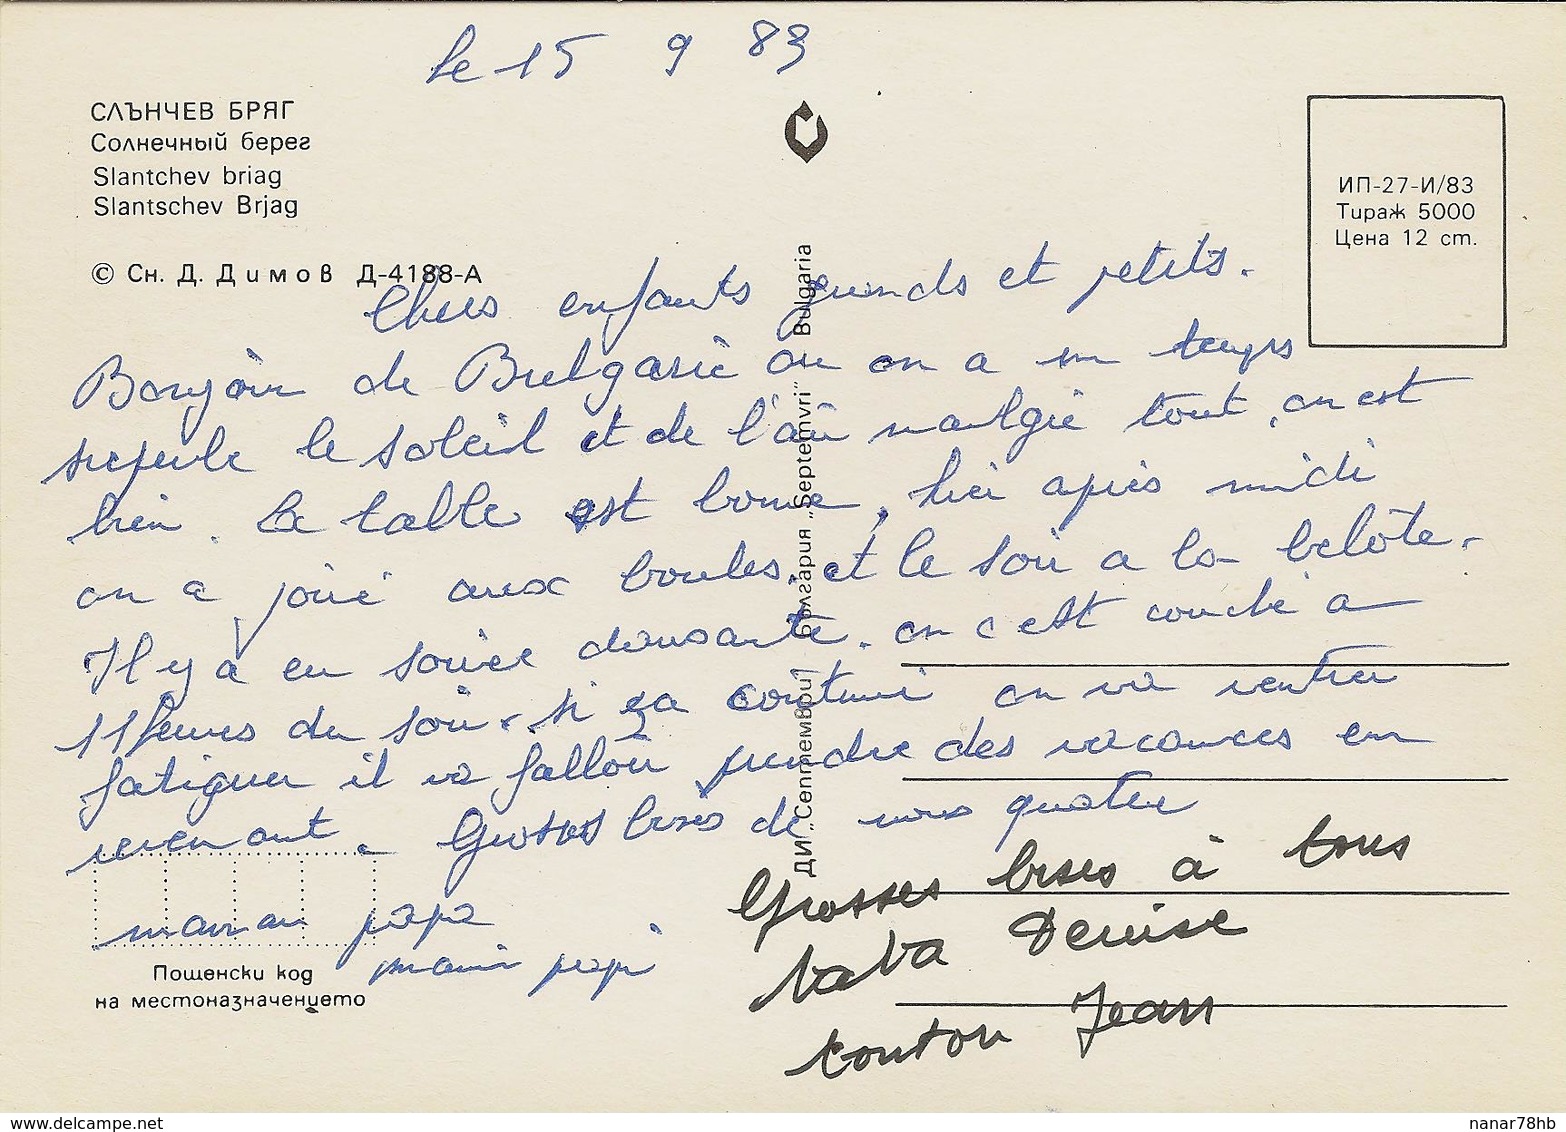 le 15 9 83
СЛЪНЧЕВ БРЯГ
Солнечный берег
Slantchev briag
Slantschev Brjag
© Сн. Д. Димов Д-4188-А
ИП-27-И/83
Тираж 5000
Цена 12 ст.
ДИ „Септември" България „Septemvri" Bulgaria
Chers enfants grands et petits.
Bonjoir de Bulgarie ou on a un temps
supeube le soleil et de l'air malgré tout, on est
bien. La table est bonne, hier après midi
on a joué aux boules, et le soir a la belôte.
Il y a eu soirée dansante. on c est couché a
11 heures du soir. si ça continue on va rentrer
fatiguer il va falloir prendre des vacances en
revenant. Grosses bises de nous quatre
maman papa
mami papi
Grosses bises à tous
tata Denise
tonton Jean
Пощенски код
на местоназначението
www.delcampe.net
nanar78hb